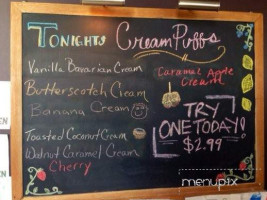 Tonight's Cream Puffs
Vanilla Bavarian Cream
Butterscotch Cream
Banana Cream
Toasted Coconut Cream
Walnut Caramel Cream
Cherry
Caramel Apple
Cream
TRY
ONE TODAY!
$2.99
menupix